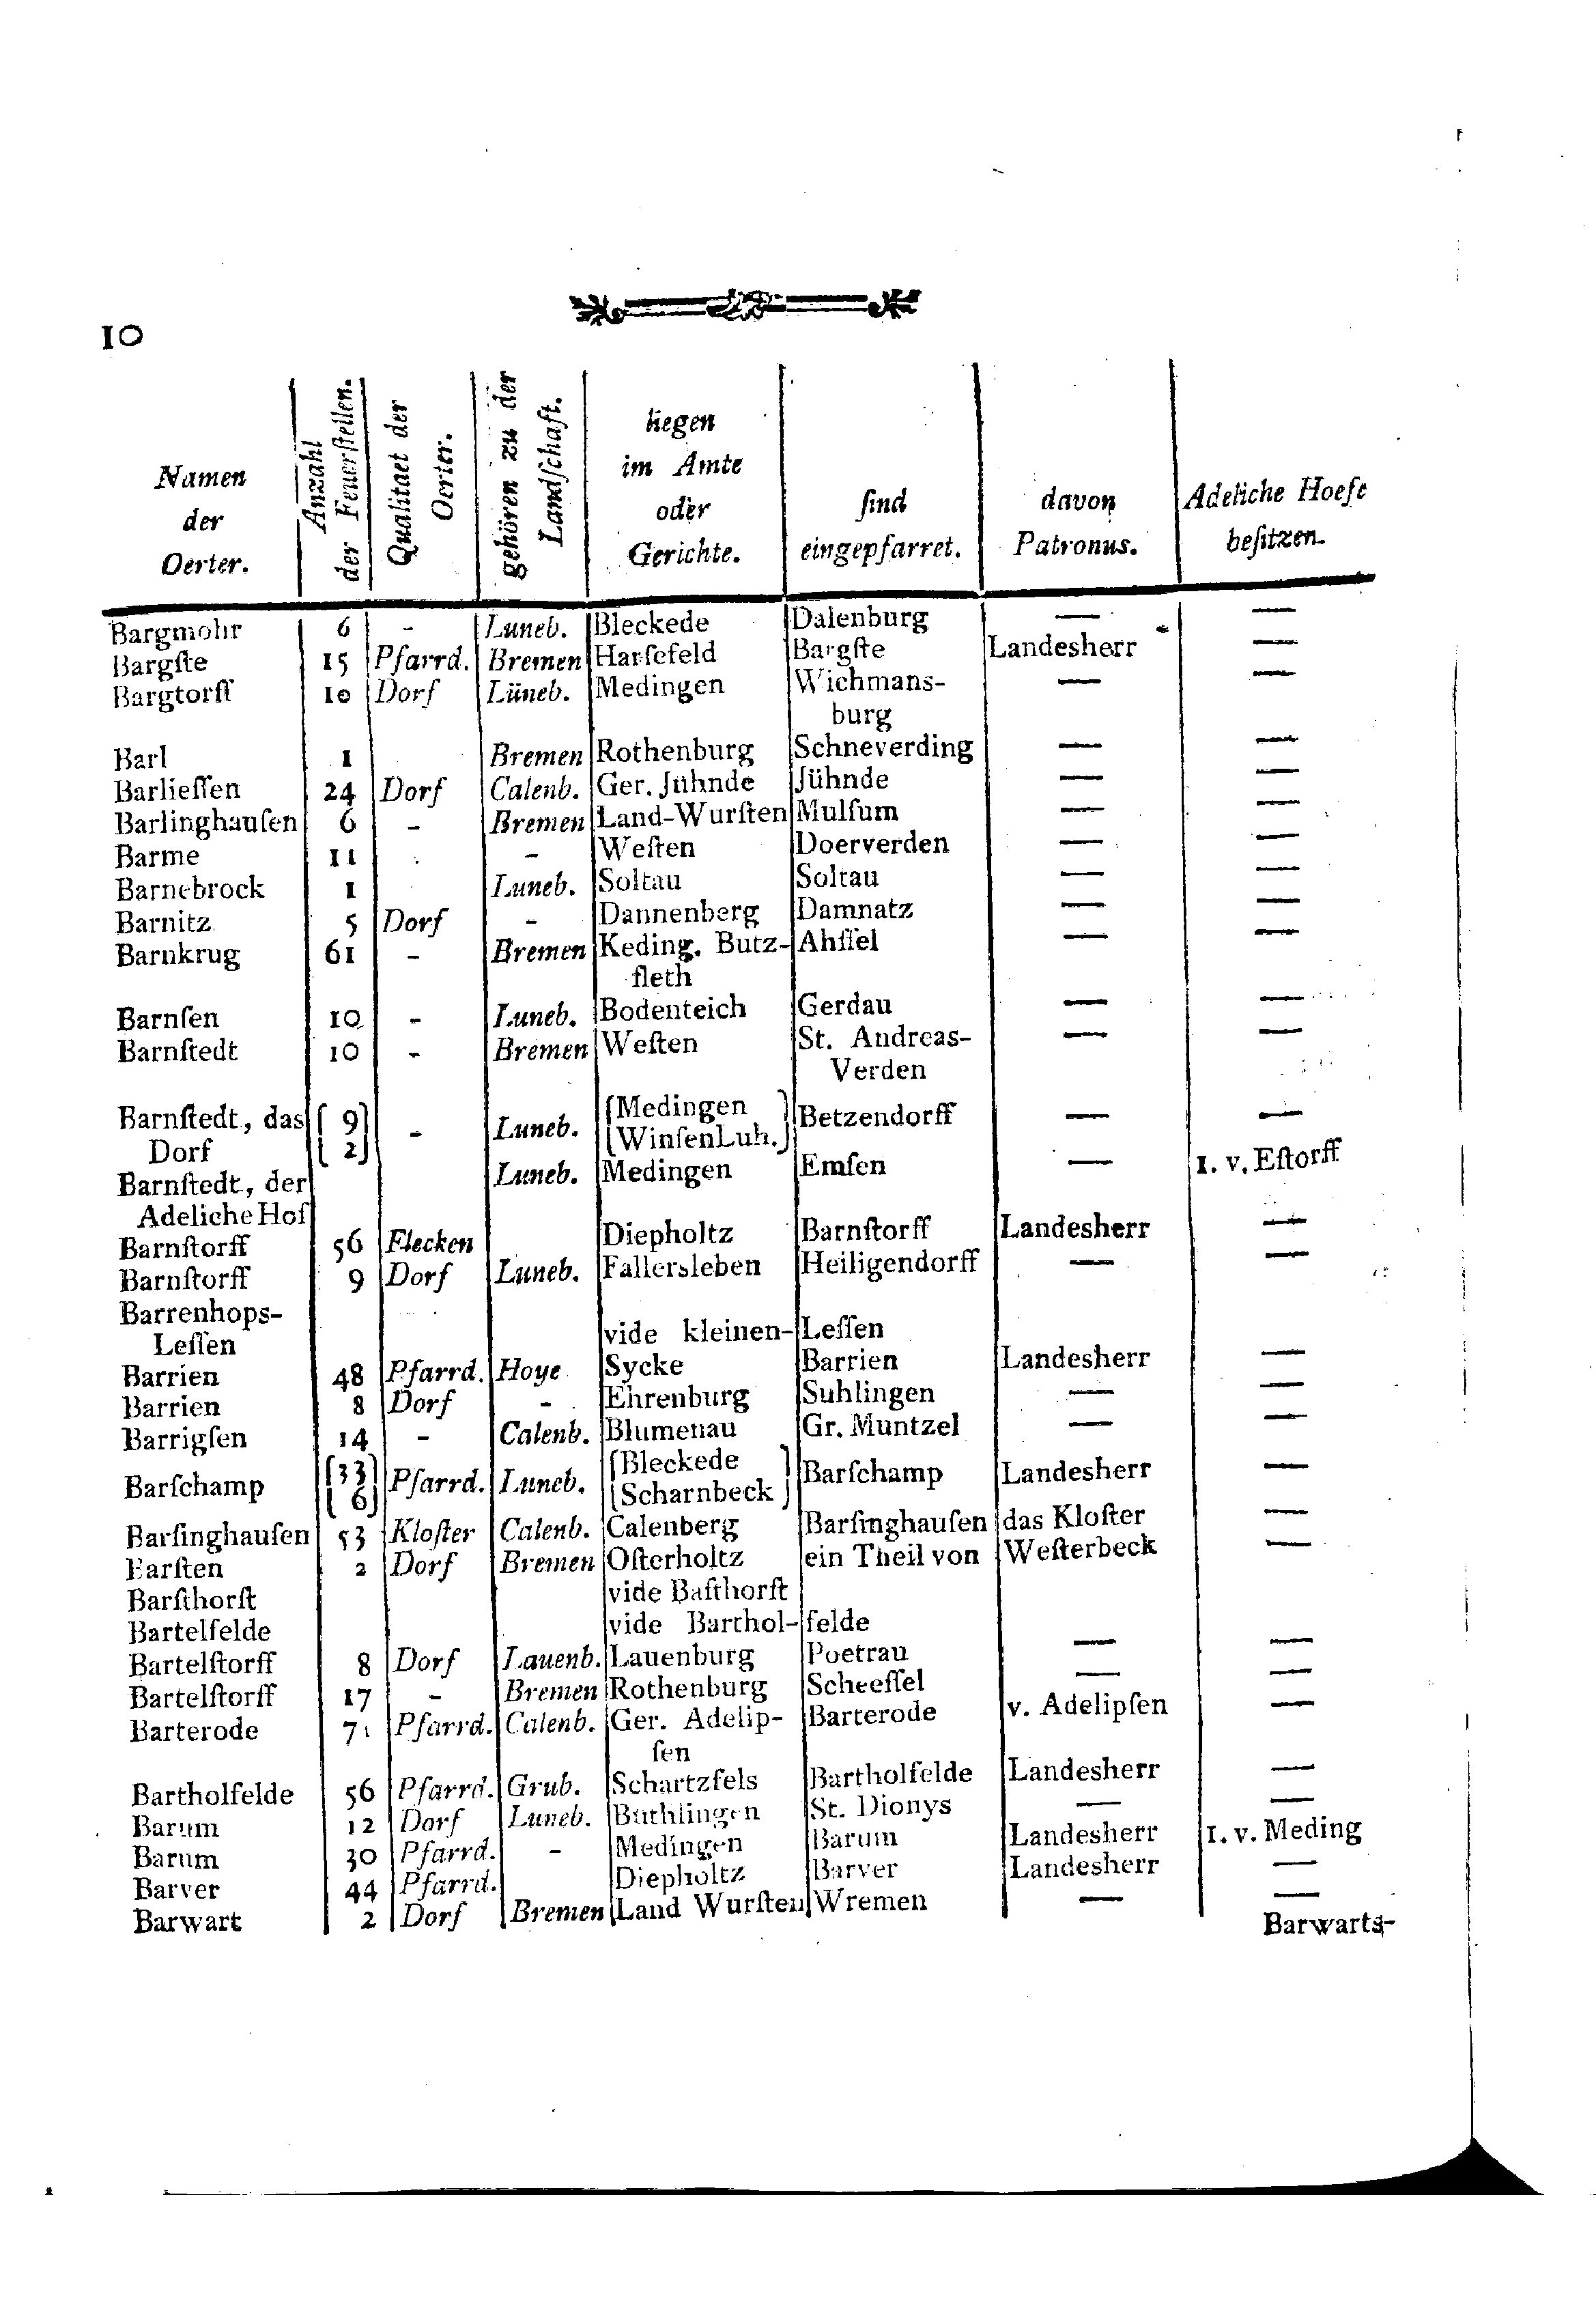 10
Namen der Oerter. | Anzahl der Feuerſtellen. | Qualitaet der Oerter. | gehören zu der Landſchaft. | liegen im Amte oder Gerichte. | ſind eingepfarret. | davon Patronus. | Adeliche Hoefe beſitzen.
Bargmohr | 6 | - | Luneb. | Bleckede | Dalenburg | — | —
Bargſte | 15 | Pfarrd. | Bremen | Harſefeld | Bargſte | Landesherr | —
Bargtorff | 10 | Dorf | Lüneb. | Medingen | Wichmans- | — | —
burg
Barl | 1 | | Bremen | Rothenburg | Schneverding | — | —
Barlieſſen | 24 | Dorf | Calenb. | Ger. Jühnde | Jühnde | — | —
Barlinghauſen | 6 | - | Bremen | Land-Wurſten | Mulſum | — | —
Barme | 11 | | - | Weſten | Doerverden | — | —
Barnebrock | 1 | | Luneb. | Soltau | Soltau | — | —
Barnitz | 5 | Dorf | - | Dannenberg | Damnatz | — | —
Barnkrug | 61 | - | Bremen | Keding. Butz- | Ahſſel | — | —
fleth
Barnſen | 10 | - | Luneb. | Bodenteich | Gerdau | — | —
Barnſtedt | 10 | - | Bremen | Weſten | St. Andreas- | — | —
Verden
Barnſtedt, das | { 9 } | - | Luneb. | { Medingen } | Betzendorff | — | —
Dorf | { 2 } | | | { WinſenLuh. }
Barnſtedt, der | | | Luneb. | Medingen | Emſen | — | 1. v. Eſtorff
Adeliche Hof
Barnſtorff | 56 | Flecken | | Diepholtz | Barnſtorff | Landesherr | —
Barnſtorff | 9 | Dorf | Luneb. | Fallersleben | Heiligendorff | — | —
Barrenhops-
Leſſen | | | | vide kleinen- | Leſſen
Barrien | 48 | Pfarrd. | Hoye | Sycke | Barrien | Landesherr | —
Barrien | 8 | Dorf | - | Ehrenburg | Suhlingen | — | —
Barrigſen | 14 | - | Calenb. | Blumenau | Gr. Muntzel | — | —
Barſchamp | { 33 } { 6 } | Pfarrd. | Luneb. | { Bleckede } { Scharnbeck } | Barſchamp | Landesherr | —
Barſinghauſen | 53 | Kloſter | Calenb. | Calenberg | Barſinghauſen | das Kloſter | —
Barſten | 2 | Dorf | Bremen | Oſterholtz | ein Theil von | Weſterbeck | —
Barſthorſt | | | | vide Baſthorſt
Bartelfelde | | | | vide Barthol- | felde
Bartelſtorff | 8 | Dorf | Lauenb. | Lauenburg | Poetrau | — | —
Bartelſtorff | 17 | - | Bremen | Rothenburg | Scheeſſel | — | —
Barterode | 71 | Pfarrd. | Calenb. | Ger. Adelip- | Barterode | v. Adelipſen | —
ſen
Bartholfelde | 56 | Pfarrd. | Grub. | Schartzfels | Bartholfelde | Landesherr | —
Barum | 12 | Dorf | Luneb. | Büthlingen | St. Dionys | — | —
Barum | 30 | Pfarrd. | - | Medingen | Barum | Landesherr | 1. v. Meding
Barver | 44 | Pfarrd. | | Diepholtz | Barver | Landesherr | —
Barwart | 2 | Dorf | Bremen | Land Wurſten | Wremen | — | —
Barwarts-